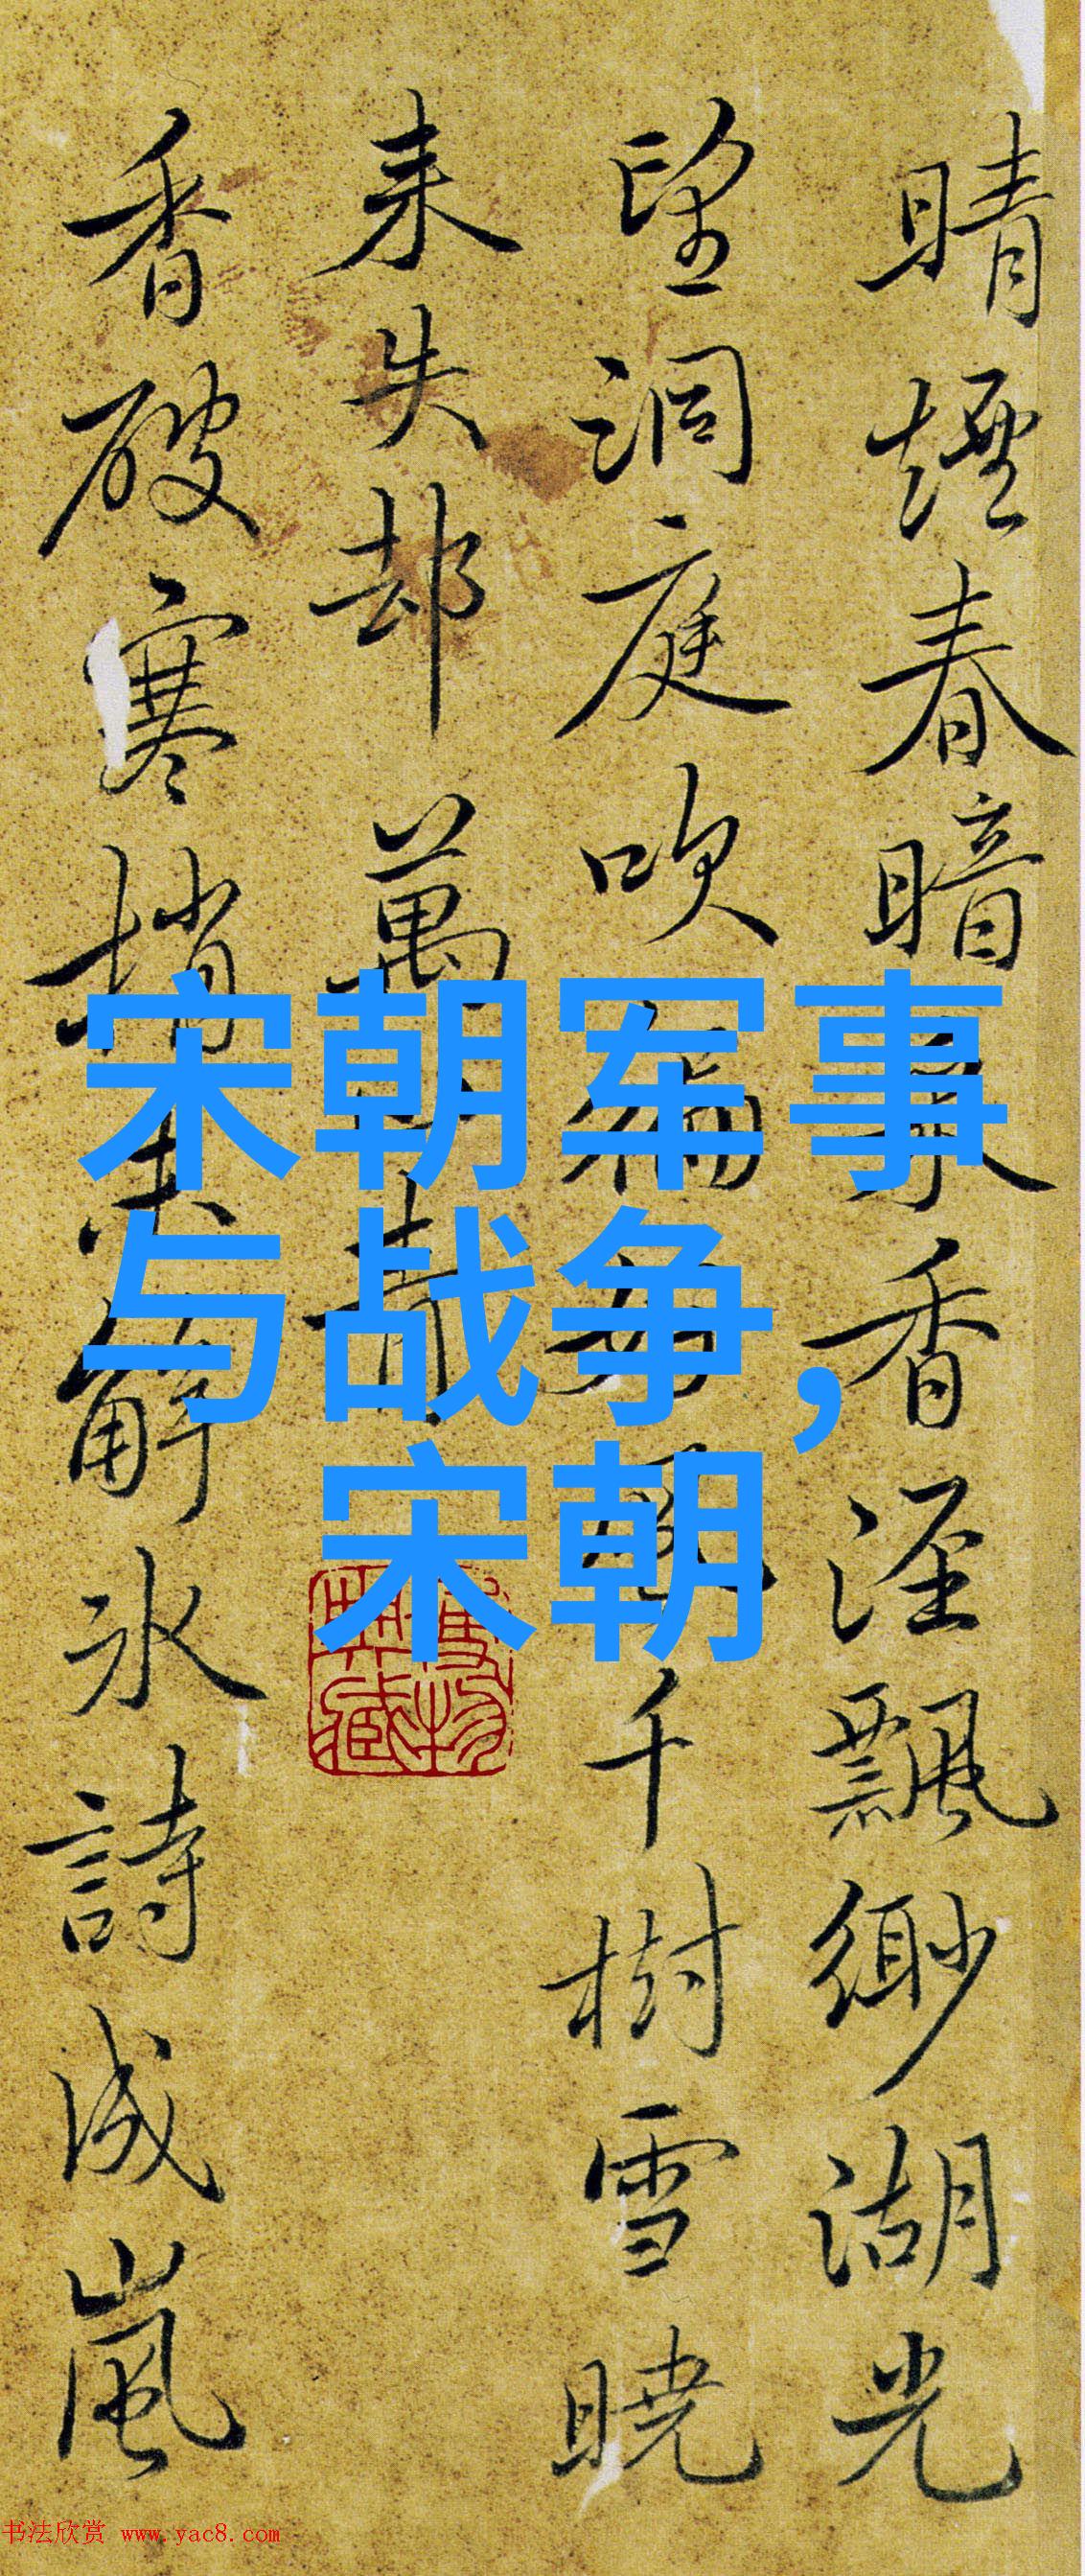 宋朝军事
与战争,
宋朝
晴煙春暗香飄緲湖光
望洞庭吹千樹雪曉
来失却萬
香破寒梢解冰詩成嵐
书法欣赏 www.yac8.com